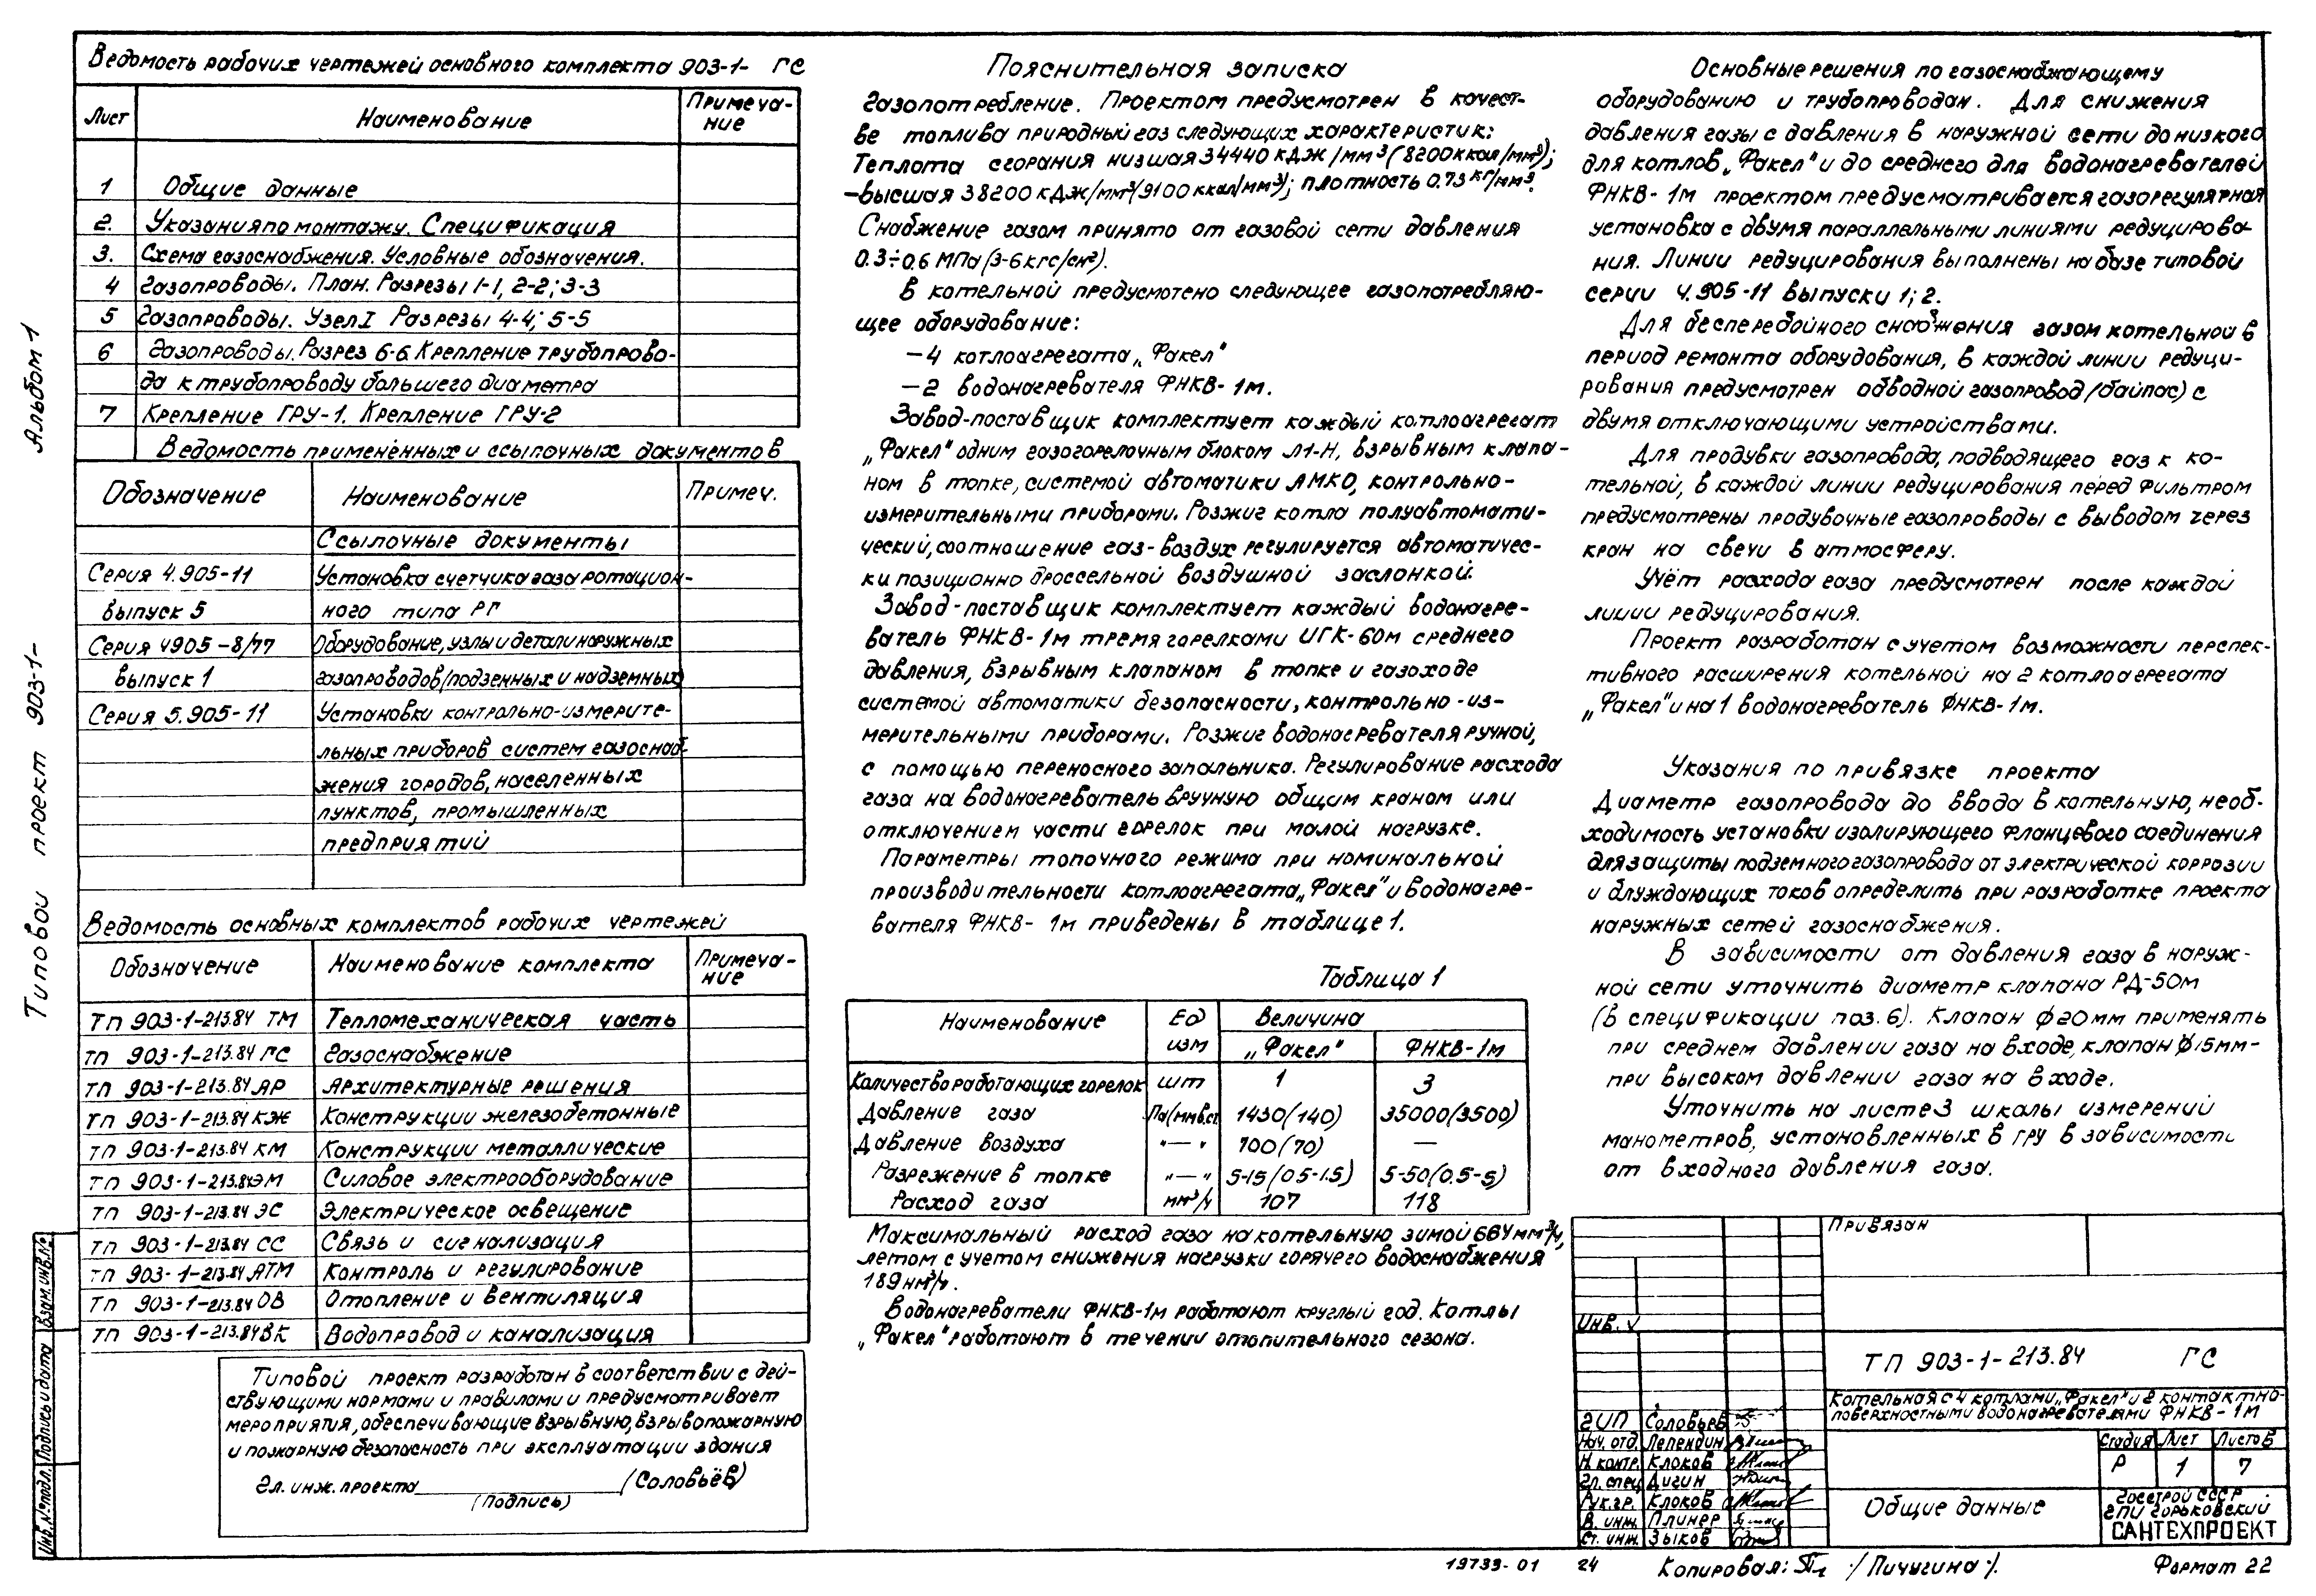 Альбом 1
Типовой проект 903-1-
Ведомость рабочих чертежей основного комплекта 903-1- ГС
Лист Наименование Примеча-
ние
1 Общие данные
2. Указания по монтажу. Спецификация
3. Схема газоснабжения. Условные обозначения.
4 Газопроводы. План. Разрезы 1-1, 2-2; 3-3
5 Газопроводы. Узел I Разрезы 4-4; 5-5
6 Газопроводы. Разрез 6-6. Крепление трубопрово-
да к трубопроводу большего диаметра
7 Крепление ГРУ-1. Крепление ГРУ-2
Ведомость применённых и ссылочных документов
Обозначение Наименование Примеч.
Ссылочные документы
Серия 4.905-11 Установка счетчика газа ротацион-
выпуск 5 ного типа РГ
Серия 4905-8/77 Оборудование, узлы и детали наружных
выпуск 1 газопроводов/подземных и надземных)
Серия 5.905-11 Установки контрольно-измерите-
льных приборов систем газоснаб-
жения городов, населенных
пунктов, промышленных
предприятий
Ведомость основных комплектов рабочих чертежей
Обозначение Наименование комплекта Примеча-
ние
ТП 903-1-213.84 ТМ Тепломеханическая часть
ТП 903-1-213.84 ГС Газоснабжение
ТП 903-1-213.84 АР Архитектурные решения
ТП 903-1-213.84 КЖ Конструкции железобетонные
ТП 903-1-213.84 КМ Конструкции металлические
ТП 903-1-213.84 ЭМ Силовое электрооборудование
ТП 903-1-213.84 ЭС Электрическое освещение
ТП 903-1-213.84 СС Связь и сигнализация
ТП 903-1-213.84 АТМ Контроль и регулирование
ТП 903-1-213.84 ОВ Отопление и вентиляция
ТП 903-1-213.84 ВК Водопровод и канализация
Типовой проект разработан в соответствии с дей-
ствующими нормами и правилами и предусматривает
мероприятия, обеспечивающие взрывную, взрывопожарную
и пожарную безопасность при эксплуатации здания
Гл. инж. проекта (Соловьёв)
(Подпись)
Инв.№подл. Подпись и дата Взам.инв.№
Пояснительная записка
Газопотребление. Проектом предусмотрен в качест-
ве топлива природный газ следующих характеристик:
Теплота сгорания низшая 34440 кДж/мм³(8200ккал/мм³);
-высшая 38200 кДж/мм³/9100 ккал/мм³); плотность 0.73 кг/мм³.
Снабжение газом принято от газовой сети давления
0.3÷0.6 МПа (3-6 кгс/см²).
В котельной предусмотено следующее газопотребляю-
щее оборудование:
-4 котлоагрегата „Факел"
-2 водонагревателя ФНКВ-1м.
Завод-поставщик комплектует каждый котлоагрегат
„Факел" одним газогорелочным блоком Л1-Н, взрывным клапа-
ном в топке, системой автоматики АМКО, контрольно-
измерительными приборами. Розжиг котла полуавтомати-
ческий, соотношение газ-воздух регулируется автоматичес-
ки позиционно дроссельной воздушной заслонкой.
Завод-поставщик комплектует каждый водонагре-
ватель ФНКВ-1м тремя горелками ИГК-60м среднего
давления, взрывным клапаном в топке и газоходе
системой автоматики безопасности, контрольно-из-
мерительными приборами. Розжиг водонагревателя ручной,
с помощью переносного запальника. Регулирование расхода
газа на водонагреватель вручную общим краном или
отключением части горелок при малой нагрузке.
Параметры топочного режима при номинальной
производительности котлоагрегата „Факел" и водонагре-
вателя ФНКВ-1м приведены в таблице 1.
Таблица 1
Наименование Ед изм Величина
„Факел" ФНКВ-1м
Количество работающих горелок шт 1 3
Давление газа Па(ммв.ст. 1430(140) 35000(3500)
Давление воздуха "—" 700(70) —
Разрежение в топке "—" 5-15(0.5-1.5) 5-50(0.5-5)
Расход газа мм³/ч 107 118
Максимальный расход газа на котельную зимой 664 мм³/ч,
летом с учетом снижения нагрузки горячего водоснабжения
189 нм³/ч.
Водонагреватели ФНКВ-1м работают круглый год. Котлы
„Факел" работают в течении отопительного сезона.
Основные решения по газоснабжающему
оборудованию и трубопроводам. Для снижения
давления газы с давления в наружной сети до низкого
для котлов „Факел" и до среднего для водонагревателей
ФНКВ-1м проектом предусматривается газорегулярная
установка с двумя параллельными линиями редуцирова-
ния. Линии редуцирования выполнены на базе типовой
серии 4.905-11 выпуски 1; 2.
Для бесперебойного снабжения газом котельной в
период ремонта оборудования, в каждой линии редуци-
рования предусмотрен обводной газопровод (байпас) с
двумя отключающими устройствами.
Для продувки газопровода, подводящего газ к ко-
тельной, в каждой линии редуцирования перед фильтром
предусмотрены продувочные газопроводы с выводом через
кран на свечи в атмосферу.
Учёт расхода газа предусмотрен после каждой
линии редуцирования.
Проект разработан с учетом возможности перспек-
тивного расширения котельной на 2 котлоагрегата
„Факел" и на 1 водонагреватель ФНКВ-1м.
Указания по привязке проекта
Диаметр газопровода до ввода в котельную, необ-
ходимость установки изолирующего фланцевого соединения
для защиты подземного газопровода от электрической коррозии
и блуждающих токов определить при разработке проекта
наружных сетей газоснабжения.
В зависимости от давления газа в наруж-
ной сети уточнить диаметр клапана РД-50м
(в спецификации поз.6). Клапан ф20мм применять
при среднем давлении газа на входе, клапан ф15мм-
при высоком давлении газа на входе.
Уточнить на листе 3 шкалы измерений
манометров, установленных в ГРУ в зависимости
от входного давления газа.
Привязан
Инв. √
ТП 903-1-213.84 ГС
Котельная с 4 котлами „Факел" и 2 контактно-
поверхностными водонагревателями ФНКВ-1М
ГИП Соловьев
Нач. отд. Лепендин
Н. контр. Клоков
Гл. спец Дигин
Рук.гр. Клоков
В. инж. Плинер
Ст. инж. Зыков
Стадия Лист Листов
Р 1 7
Общие данные
Госстрой СССР
ГПИ Горьковский
САНТЕХПРОЕКТ
19733-01 24 Копировал: /Пичугина/. Формат 22